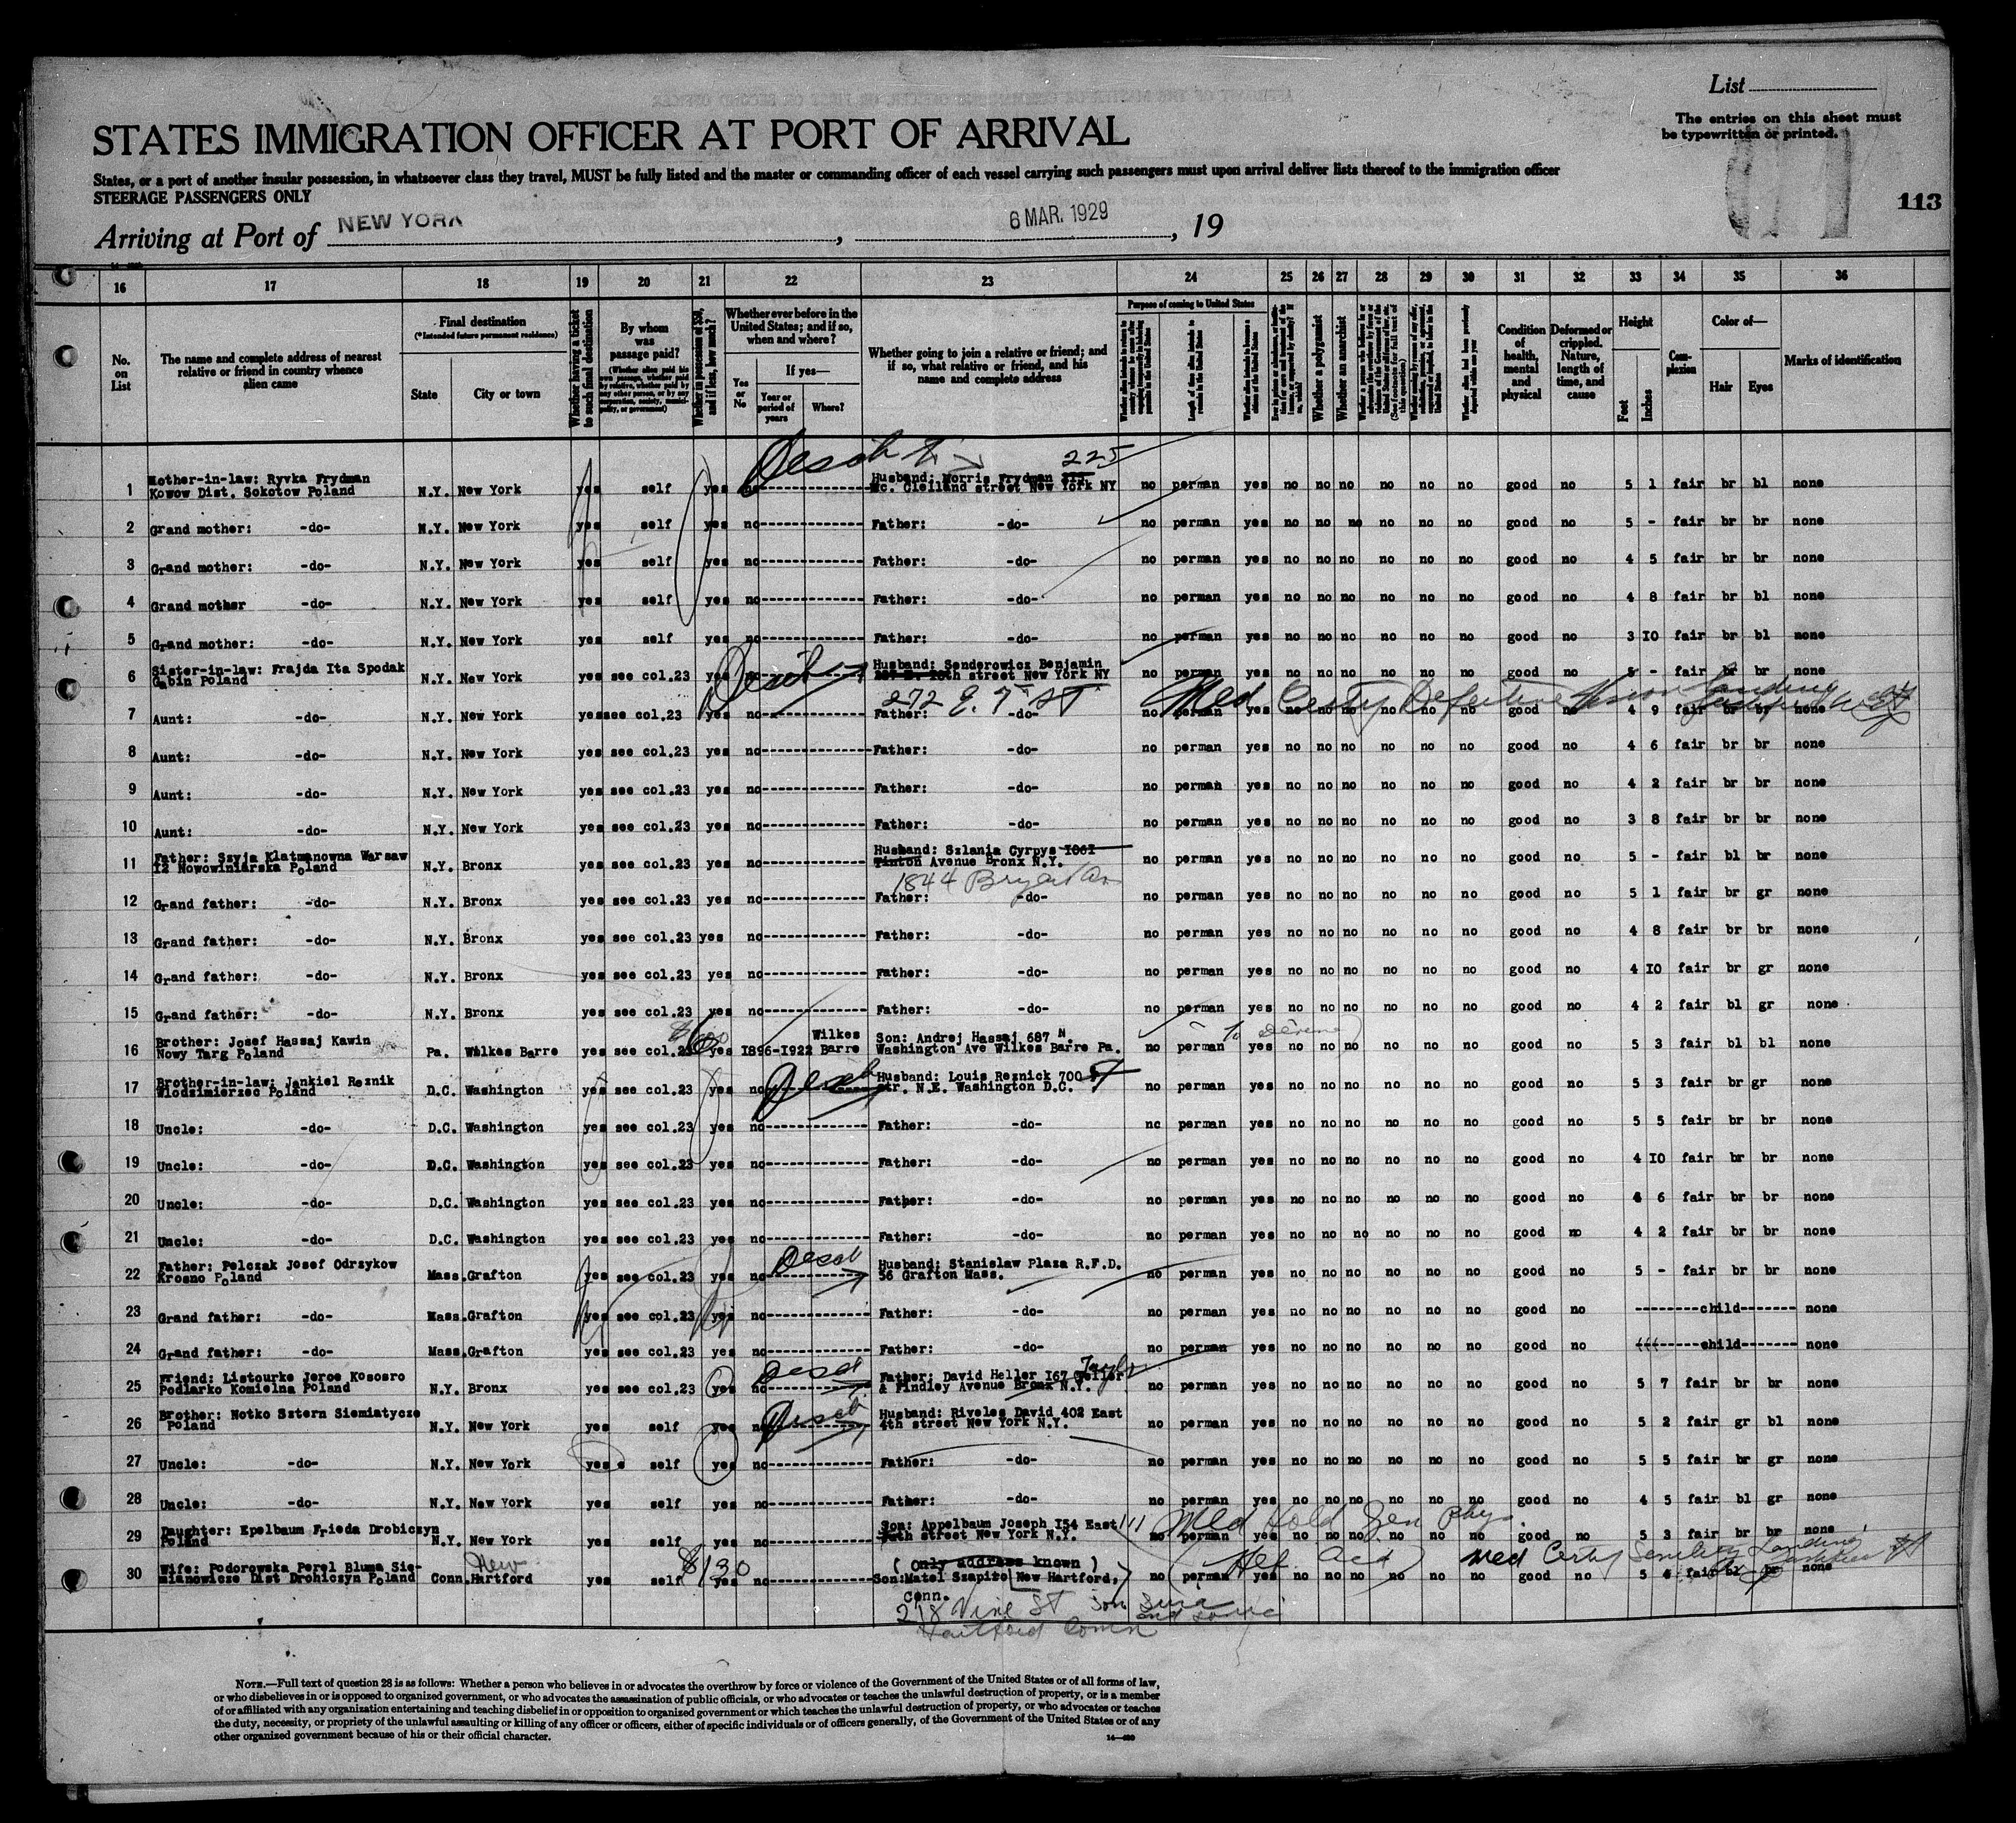 List
The entries on this sheet must
be typewritten or printed.
STATES IMMIGRATION OFFICER AT PORT OF ARRIVAL
States, or a port of another insular possession, in whatsoever class they travel, MUST be fully listed and the master or commanding officer of each vessel carrying such passengers must upon arrival deliver lists thereof to the immigration officer
STEERAGE PASSENGERS ONLY
113
Arriving at Port of NEW YORK , 6 MAR. 1929 , 19
16 17 18 19 20 21 22 23 24 25 26 27 28 29 30 31 32 33 34 35 36
No. on List
The name and complete address of nearest relative or friend in country whence alien came
Final destination
(*Intended future permanent residence)
State
City or town
Whether having a ticket to such final destination
By whom was passage paid?
Whether in possession of $50, and if less, how much?
Whether ever before in the United States; and if so, when and where?
Yes or No
If yes—
Year or period of years
Where?
Whether going to join a relative or friend; and if so, what relative or friend, and his name and complete address
Purpose of coming to United States
Whether a polygamist
Whether an anarchist
Condition of health, mental and physical
Deformed or crippled. Nature, length of time, and cause
Height
Feet
Inches
Complexion
Color of—
Hair
Eyes
Marks of identification
1 Mother-in-law: Ryvka Frydman Kowow Dist. Sokotow Poland N.Y. New York yes self yes no Husband: Morris Frydman 225 Mc. Clelland street New York NY no perman yes no no no no no no good no 5 1 fair br bl none
2 Grand mother: -do- N.Y. New York yes self yes no Father: -do- no perman yes no no no no no no good no 5 - fair br br none
3 Grand mother: -do- N.Y. New York yes self yes no Father: -do- no perman yes no no no no no no good no 4 5 fair br br none
4 Grand mother -do- N.Y. New York yes self yes no Father: -do- no perman yes no no no no no no good no 4 8 fair br bl none
5 Grand mother: -do- N.Y. New York yes self yes no Father: -do- no perman yes no no no no no no good no 3 IO fair br bl none
6 Sister-in-law: Frajda Ita Spodak Gabin Poland N.Y. New York yes see col.23 yes no Husband: Senderowicz Benjamin street New York NY no perman yes no no no no no no good no 5 - fair br br none
272 E. 7 St Med Certf Defective Vision
7 Aunt: -do- N.Y. New York yes see col.23 yes no Father: -do- no perman yes no no no no no no good no 4 9 fair br br none
8 Aunt: -do- N.Y. New York yes see col.23 yes no Father: -do- no perman yes no no no no no no good no 4 6 fair br br none
9 Aunt: -do- N.Y. New York yes see col.23 yes no Father: -do- no perman yes no no no no no no good no 4 2 fair br br none
10 Aunt: -do- N.Y. New York yes see col.23 yes no Father: -do- no perman yes no no no no no no good no 3 8 fair br br none
11 Father: Szyja Klatmanowna Warsaw I2 Nowowiniarska Poland N.Y. Bronx yes see col.23 yes no Husband: Szlania Cyrpys I06I Tinton Avenue Bronx N.Y. no perman yes no no no no no no good no 5 - fair bl br none
1844 Bryant Av
12 Grand father: -do- N.Y. Bronx yes see col.23 yes no Father: -do- no perman yes no no no no no no good no 5 1 fair br gr none
13 Grand father: -do- N.Y. Bronx yes see col.23 yes no Father: -do- no perman yes no no no no no no good no 4 8 fair br br none
14 Grand father: -do- N.Y. Bronx yes see col.23 yes no Father: -do- no perman yes no no no no no no good no 4 IO fair br gr none
15 Grand father: -do- N.Y. Bronx yes see col.23 yes no Father: -do- no perman yes no no no no no no good no 4 2 fair bl gr none
16 Brother: Josef Hassaj Kawin Nowy Targ Poland Pa. Wilkes Barre yes see col.23 yes I896-I922 Wilkes Barre Son: Andrej Hassaj 687 N Washington Ave Wilkes Barre Pa. no perman yes no no no no no no good no 5 3 fair bl bl none
17 Brother-in-law: Jankiel Reznik Wlodzimierzec Poland D.C. Washington yes see col.23 yes no Husband: Louis Reznick 700 str. N.E. Washington D.C. no perman yes no no no no no no good no 5 3 fair br gr none
18 Uncle: -do- D.C. Washington yes see col.23 yes no Father: -do- no perman yes no no no no no no good no 5 5 fair br br none
19 Uncle: -do- D.C. Washington yes see col.23 yes no Father: -do- no perman yes no no no no no no good no 4 IO fair br br none
20 Uncle: -do- D.C. Washington yes see col.23 yes no Father: -do- no perman yes no no no no no no good no 4 6 fair br br none
21 Uncle: -do- D.C. Washington yes see col.23 yes no Father: -do- no perman yes no no no no no no good no 4 2 fair br br none
22 Father: Pelczak Josef Odrzykow Krosno Poland Mass. Grafton yes see col.23 yes no Husband: Stanislaw Plaza R.F.D. 56 Grafton Mass. no perman yes no no no no no no good no 5 - fair br br none
23 Grand father: -do- Mass. Grafton yes see col.23 yes no Father: -do- no perman yes no no no no no no good no child none
24 Grand father: -do- Mass. Grafton yes see col.23 yes no Father: -do- no perman yes no no no no no no good no child none
25 Friend: Listourke Jeroe Kososro Podlarko Komielna Poland N.Y. Bronx yes see col.23 yes no Father: David Heller I67 & Findley Avenue Bronx N.Y. no perman yes no no no no no no good no 5 7 fair br br none
26 Brother: Notko Sztern Siemiatycze Poland N.Y. New York yes self yes no Husband: Riveles David 402 East 4th street New York N.Y. no perman yes no no no no no no good no 5 2 fair gr bl none
27 Uncle: -do- N.Y. New York yes self yes no Father: -do- no perman yes no no no no no no good no 5 5 fair br gr none
28 Uncle: -do- N.Y. New York yes self yes no Father: -do- no perman yes no no no no no no good no 4 5 fair bl gr none
Med Hold Gen Phys.
29 Daughter: Epelbaum Frieda Drobiczyn Poland N.Y. New York yes self yes no Son: Appelbaum Joseph I54 East 111 street New York N.Y. no perman yes no no no no no no good no 5 3 fair br br none
30 Wife: Podorowska Perel Bluma Siemianowicze Dist Drohiczyn Poland Conn. New Hartford yes self $130 no (Only address known) Son: Matel Szapiro New Hartford, Conn. no perman yes no no no no no no good no 5 4 fair br br none
Med Certf Senility Landing
218 Vine St
Hartford Conn
NOTE.—Full text of question 28 is as follows: Whether a person who believes in or advocates the overthrow by force or violence of the Government of the United States or of all forms of law,
or who disbelieves in or is opposed to organized government, or who advocates the assassination of public officials, or who advocates or teaches the unlawful destruction of property, or is a member
of or affiliated with any organization entertaining and teaching disbelief in or opposition to organized government or which teaches the unlawful destruction of property, or who advocates or teaches
the duty, necessity, or propriety of the unlawful assaulting or killing of any officer or officers, either of specific individuals or of officers generally, of the Government of the United States or of any
other organized government because of his or their official character.